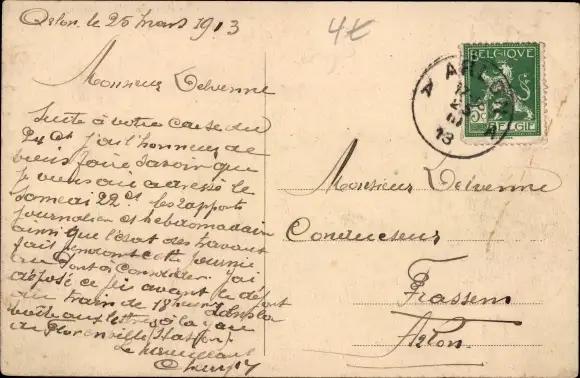 Arlon le 25 mars 1913
4€
Monsieur Delvenne
Suite à votre carte du
24 ct j'ai l'honneur de
vous faire savoir que
je vous ai adressé le
samedi 22 ct les rapports
journalier et hebdomadaire
ainsi que l'état des travaux
fait pendant cette journée
au Pont à
déposé ce pli avant le départ
du train de 18 heures dans la
boîte aux lettres à la gare
de Florenville (Station)
Le surveillant
BELGIQUE
BELGIË
ARLON
A A
13
Monsieur Delvenne
Conducteur
Frassem
Arlon